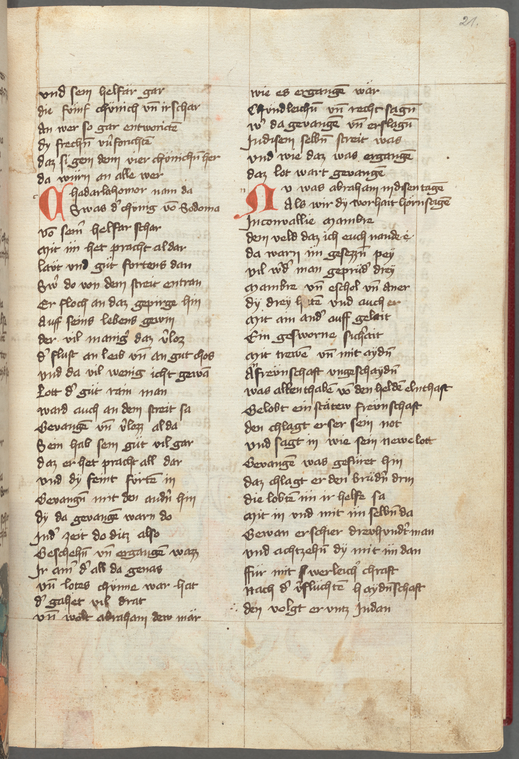 21.
vnd sein helfär gar
die fünf chünich vñ ir schar
an wer so gar entworicht
dy frechñ vñ forichte
daz si gein dem vier chünichñ her
da würn an alle wer
Chadarlahomor nam da
Swas d' chünig võ Sodoma
võ sein helfär schar
mit im het pracht al dar
lawt vnd güt fortens dan
Sw' do von dem streit entran
Er floch an daz gepirge hin
Auf seins lebens gewin
der vil manig' daz v'loz
d' flust an leid vñ an gut chos
vnd da vil wenig icht gewã
Lott d' güt ram man
ward auch an dem streit sa
Gevangẽ vñ v'lozz al da
Sein hab sein güt vil gar
daz er het pracht all dar
vnd dy feint fürtẽ in
Gevangñ mit dẽ andñ hin
dy da gevangẽ warn do
Indˢ zeit do ditz also
Geschehñ vñ ergangẽ waz
Ir ainˢ d' all da genas
vñ lotes chünne war hat
d' gahet vil drat
vñ wolt abraham dew mär
wie es ergangẽ wär
Chündleichñ vñ recht sagñ
Wˢ da gevangẽ vñ erslagñ
In disem selbñ streit was
vnd wie daz was ergangẽ
daz lot wart gevangẽ
Nu was abraham in disen tagẽ
Als wir dy worhait hörn sagẽ
In convallie mambre
dem veld daz ich euch nande e
da warn im gesezzñ pey
vil wˢd' man gepriˢd drey
mambre vñ eschol vñ aner
dy drey hettẽ vnd auch er
mit am andˢ auff geleit
Ein gesworne sichait
mit trewẽ vñ mit aydñ
A frewnschaft vngeschaydñ
was allenthalbẽ võ den heldẽ elnthaft
Gelobt ein stätew frewnschaft
den chlagt er ser sein not
vnd sagt in wie sein newe lott
Gevangẽ was gefüret hin
daz chlagt er den brüdñ drin
die lobtẽ im ir helfe sa
mit in vnd mit im selbñ da
Gewan er schier drevhundˢt man
vnd achtzehñ dy mit im dan
Für mit swerleichˢ chraft
Nach d' vˢfluchtẽ haydñschaft
den volgt er vntz in dan